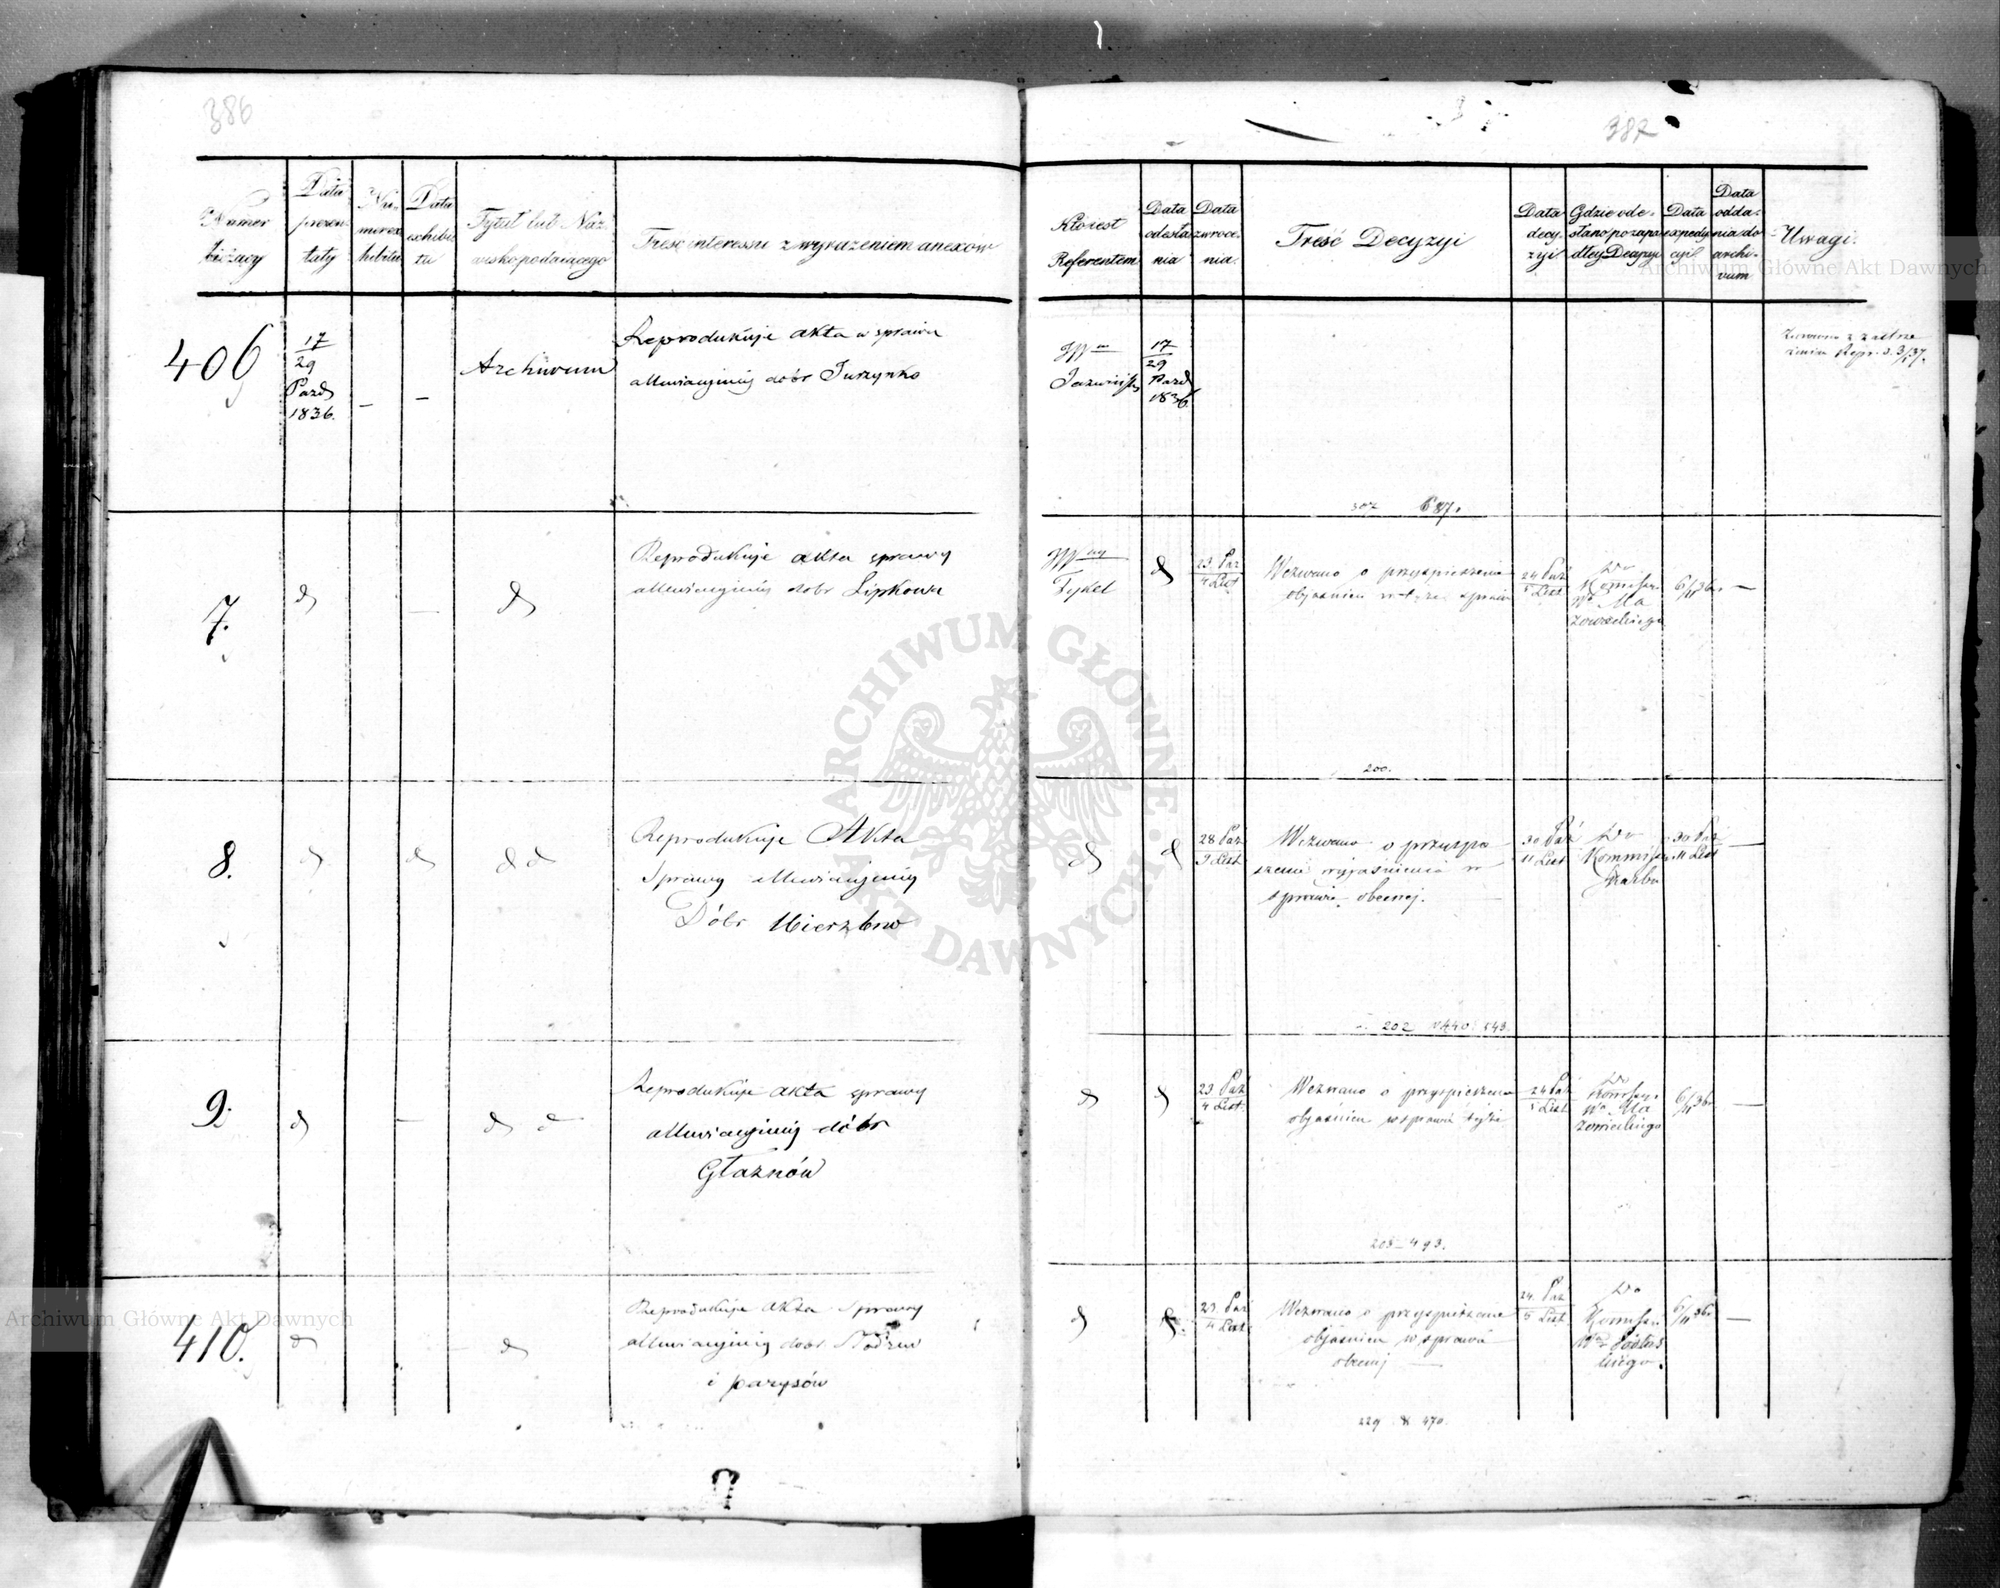 386
Numer
bieżący
Data
prezen
taty
Nu-
merex
hibitu
Data
exhibi
tu
Tytuł lub Naz
wisko podaiącego
Treść interessu z wyrażeniem anexow
406
17
29
Pazd
1836.
—
—
Archiwum
Reprodukuje akta w sprawie
alluwiacyjnéj dobr
7.
d
—
d
Reprodukuje akta sprawy
alluwiacyjnéj dobr Lipkowa
8.
d
d
d d
Reprodukuje Akta
Sprawy alluwiacyjnéj
Dóbr
9.
d
—
d d
Reprodukuje akta sprawy
alluwiacyjnéj dóbr
Głaznów
410.
d
d
Reprodukuje akta Sprawy
alluwiacyjnéj dobr
i Parysów
387
Ktoiest
Referentem
Data
odesła
nia
Data
zwroce-
nia.
Treść Decyzyi
Data
decy-
zyi
Gdzie ode-
słano po zapa
dłey Decyzyi
Data
expedy
cyi
Data
odda-
nia do
archi-
vum
Uwagi.
17
29
Pazd
1836.
687.
Fykel
d
23 Paź
4 List
Wezwano o przyspieszenie
objaśnień w tejże sprawie
24 Paź
5 List
Do
Komissyi
Wa Ma
zowieckiego
6/11 36.
—
200.
d
d
28 Paź
9 List
Wezwano o przyspie
szenie wyjaśnienia w
sprawie obecnej.
30 Paź
11 List
Do
Kommissyi
Skarbu
30 Paź
11 List
—
202
d
d
23 Paź
4 List.
Wezwano o przyspieszenie
objaśnień w sprawie tejże
24 Paź
5 List
Do
Komissyi
Wa Ma
zowieckiego
6/11 36
—
203—493.
d
23 Paź
4 List
Wezwano o przyspieszenie
objaśnień w sprawie
obecnej —
24. Paź
5 List
Do
Komissyi
6/11 36
—
229 470.
ARCHIWUM GŁÓWNE AKT DAWNYCH
Archiwum Główne Akt Dawnych
Archiwum Główne Akt Dawnych